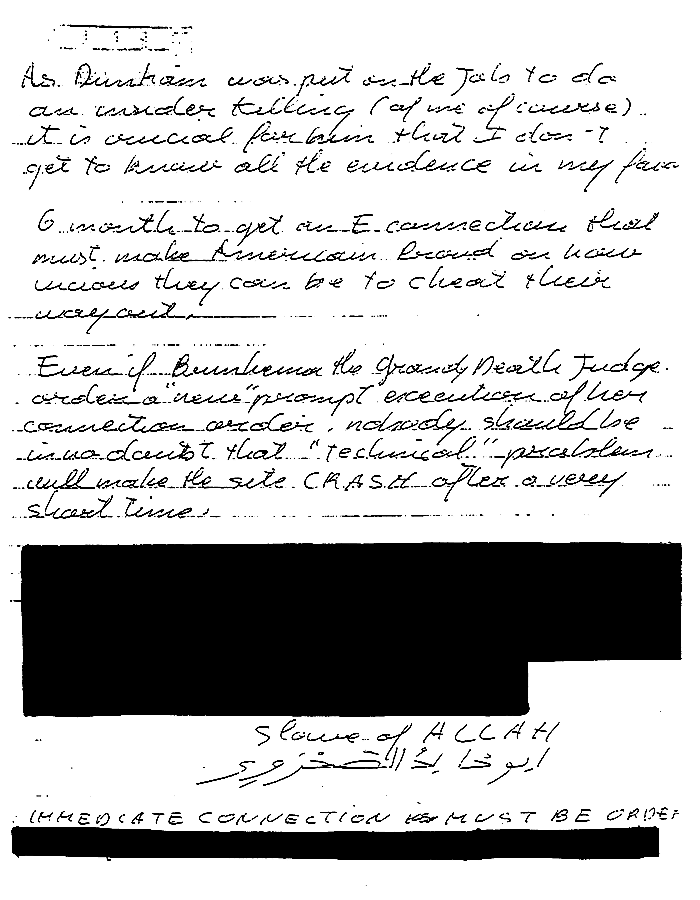 As Dunham was put on the Job to do
an insider killing (of me of course)
it is crucial for him that I don't
get to know all the evidence in my favo
6 month to get an E connection that
must make American Proud on how
vicious they can be to cheat their
way out.
Even if Brinkema the Grand Death Judge
order a "new" prompt execution of her
connection order, nobody should be
in no doubt that "technical" problem
will make the site CRASH after a very
short time.
Slave of ALLAH
IMMEDIATE CONNECTION MUST BE ORDER